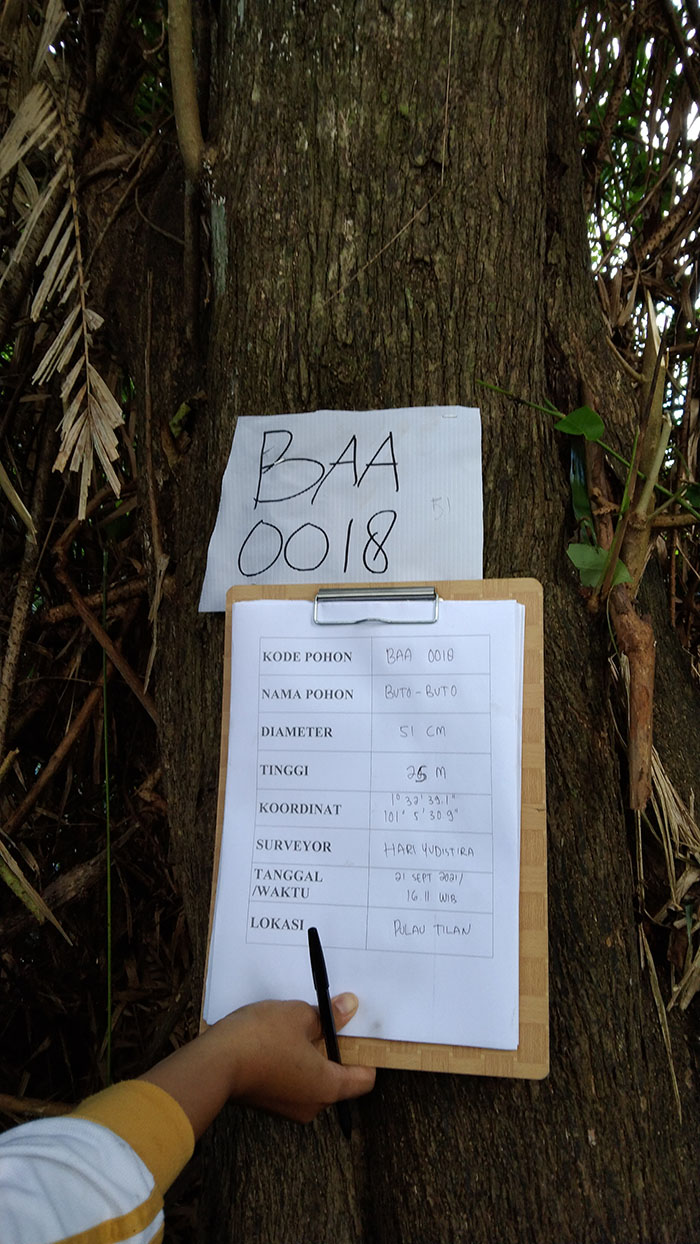 BAA
0018
51
KODE POHON BAA 0018
NAMA POHON BUTO-BUTO
DIAMETER 51 CM
TINGGI 25 M
KOORDINAT 1° 32' 39.1"
101° 5' 30.9"
SURVEYOR HARI YUDISTIRA
TANGGAL 21 SEPT 2021/
/WAKTU 16.11 WIB
LOKASI PULAU TILAN